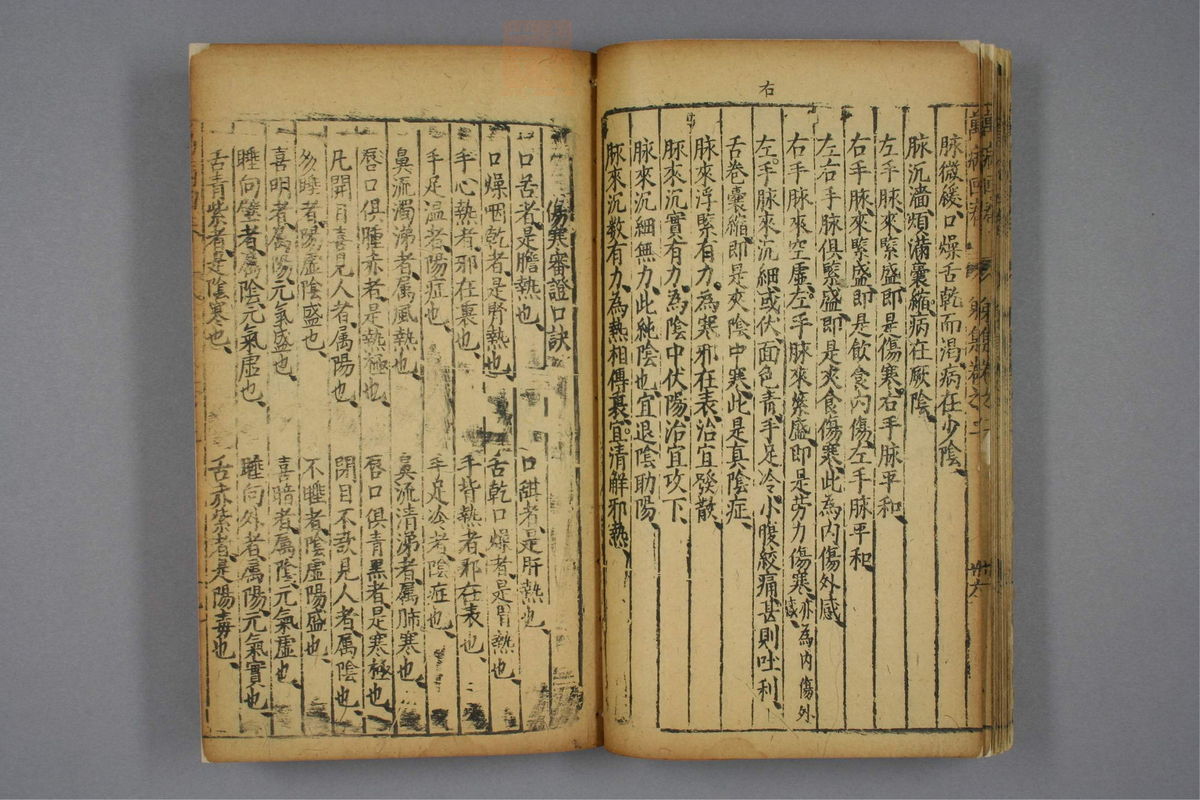 右
脉微緩、口燥舌乾而渴、病在少陰、
脉沉濇煩滿囊縮、病在厥陰、
左手脉來緊盛、即是傷寒、右手脉平和、
右手脉來緊盛、即是飲食内傷、左手脉平和
左右手脉俱緊盛、即是夾食傷寒、此為内傷外感、
右手脉來空虛、左手脉來緊盛、即是劳力傷寒、亦為内傷外感、
左手脉來沉細或伏、面色青、手足冷、小腹絞痛甚則吐利、
舌卷囊縮、即是夾陰中寒、此是真陰症、
脉來浮緊有力、為寒邪在表、治宜發散、
脉來沉實有力、為陰中伏陽、治宜攻下、
脉來沉細無力、此純陰也、宜退陰助陽、
脉來沉数有力、為熱相傳裏、宜清解邪熱、
傷寒審證口訣
口苦者、是膽熱也、 口䑛者、是肝熱也、
口燥咽乾者、是腎熱也、 舌乾口燥者、是胃熱也、
手心熱者、邪在裏也、 手背熱者、邪在表也、
手足温者、陽症也、 手足冷者、陰症也、
鼻流濁涕者、属風熱也、 鼻流清涕者、属肺寒也、
唇口俱腫赤者、是熱極也、 唇口俱青黑者、是寒極也、
凡開目喜見人者、属陽也、 閉目不欲見人者、属陰也、
多睡者、陽虛陰盛也、 不睡者、陰虛陽盛也、
喜明者、属陽、元氣盛也、 喜暗者、属陰、元氣虛也、
睡向壁者、属陰、元氣虛也、 睡向外者、属陽、元氣實也、
舌青紫者、是陰寒也、 舌赤紫者、是陽毒也、